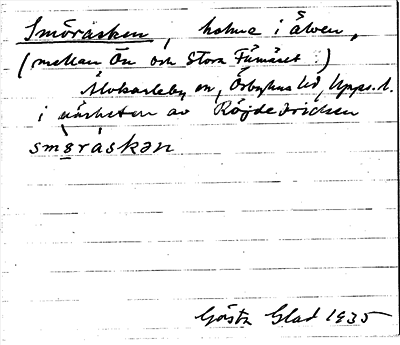 Smöråsken, holme i älven,
(mellan Ön och Stora Fämäset.)
Älvkarleby sn, Örbyhus hd, Upps. l.
i närheten av Röjdedrickan
smøråskan
Gösta Glad 1935